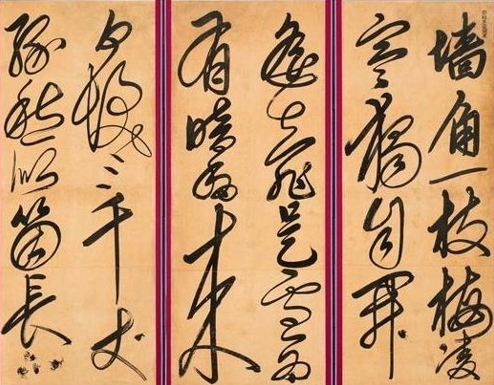 墙角一枝梅凌
寒獨自開
遥知是雪為
有暗香来
白髮三千丈
緣愁似箇長